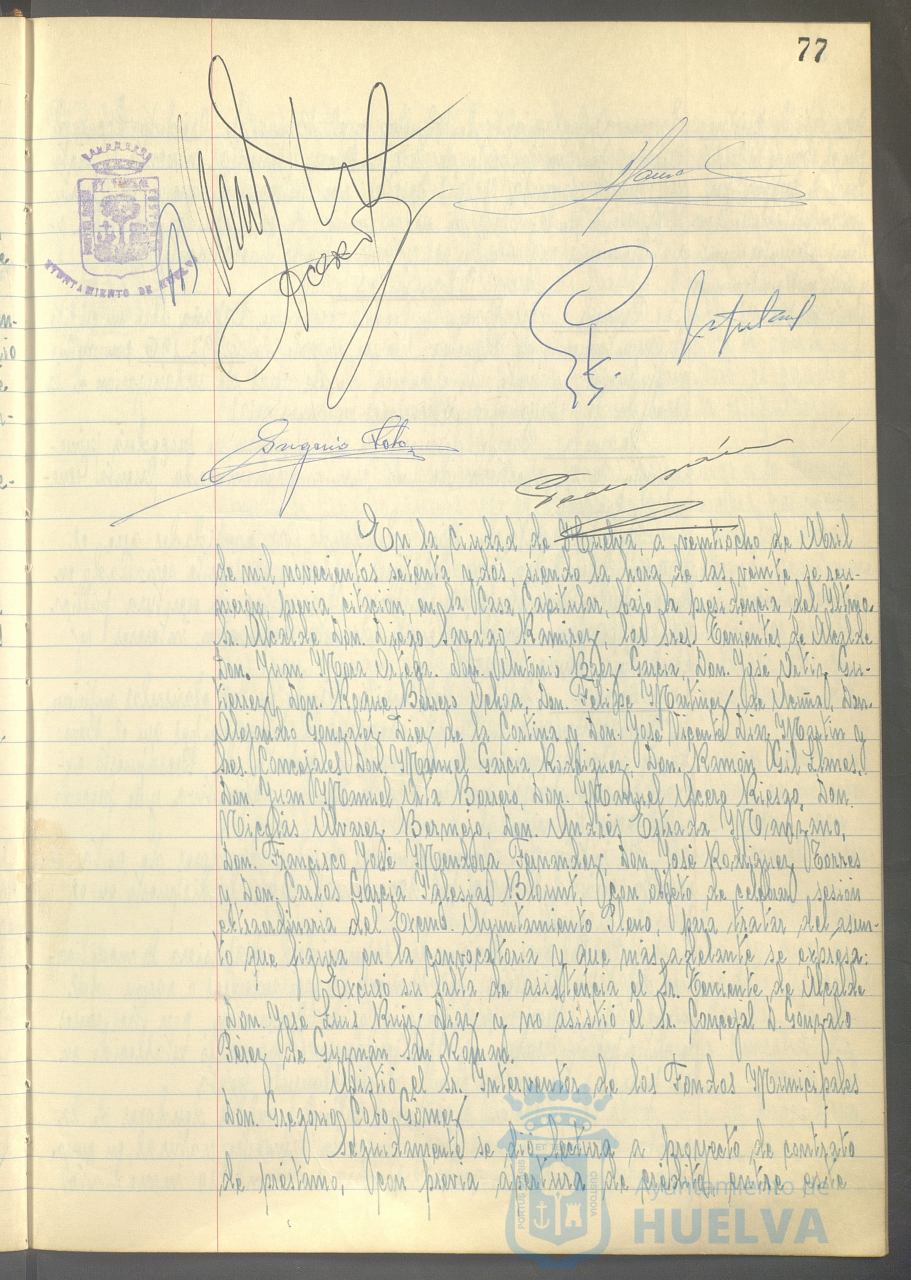 77
AYUNTAMIENTO DE HUELVA
En la ciudad de Huelva, a veintiocho de Abril
de mil novecientos setenta y dos, siendo la hora de las veinte, se reu-
nieron, previa citación, en la Casa Capitular, bajo la presidencia del Iltmo.
Sr. Alcalde Don Diego Ramírez, los Sres. Tenientes de Alcalde
Don Juan Mora Ortega, Don Antonio Baez Garcia, Don José Ortiz Gu-
tierrez, Don Roque Barrero Ochoa, Don Felipe Martinez de Don
Alejandro Gonzalez Diez de la Cortina y Don José Vicente Diaz Martin y
Sres. Concejales Don Manuel Garcia Rodriguez, Don Ramón Gil Llanes,
Don Juan Manuel Orta Barrero, Don Manuel Acero Riesgo, Don
Nicolás Alvarez Bermejo, Don Andrés Estrada Manzano,
Don Francisco José Mendoza Fernandez, Don José Rodriguez Torres
y Don Carlos Garcia Iglesias Blount, con objeto de celebrar sesión
extraordinaria del Excmo. Ayuntamiento Pleno, para tratar del asun-
to que figura en la convocatoria y que más adelante se expresa.
Excusó su falta de asistencia el Sr. Teniente de Alcalde
Don José Luis Ruiz Diaz y no asistió el Sr. Concejal D. Gonzalo
Pérez de Guzmán San Roman.
Asistió el Sr. Interventor de los Fondos Municipales
Don Gregorio Cobo Gómez
Seguidamente se dió lectura a proyecto de contrato
de préstamo, con previa apertura de crédito, entre este
Ayuntamiento de
HUELVA